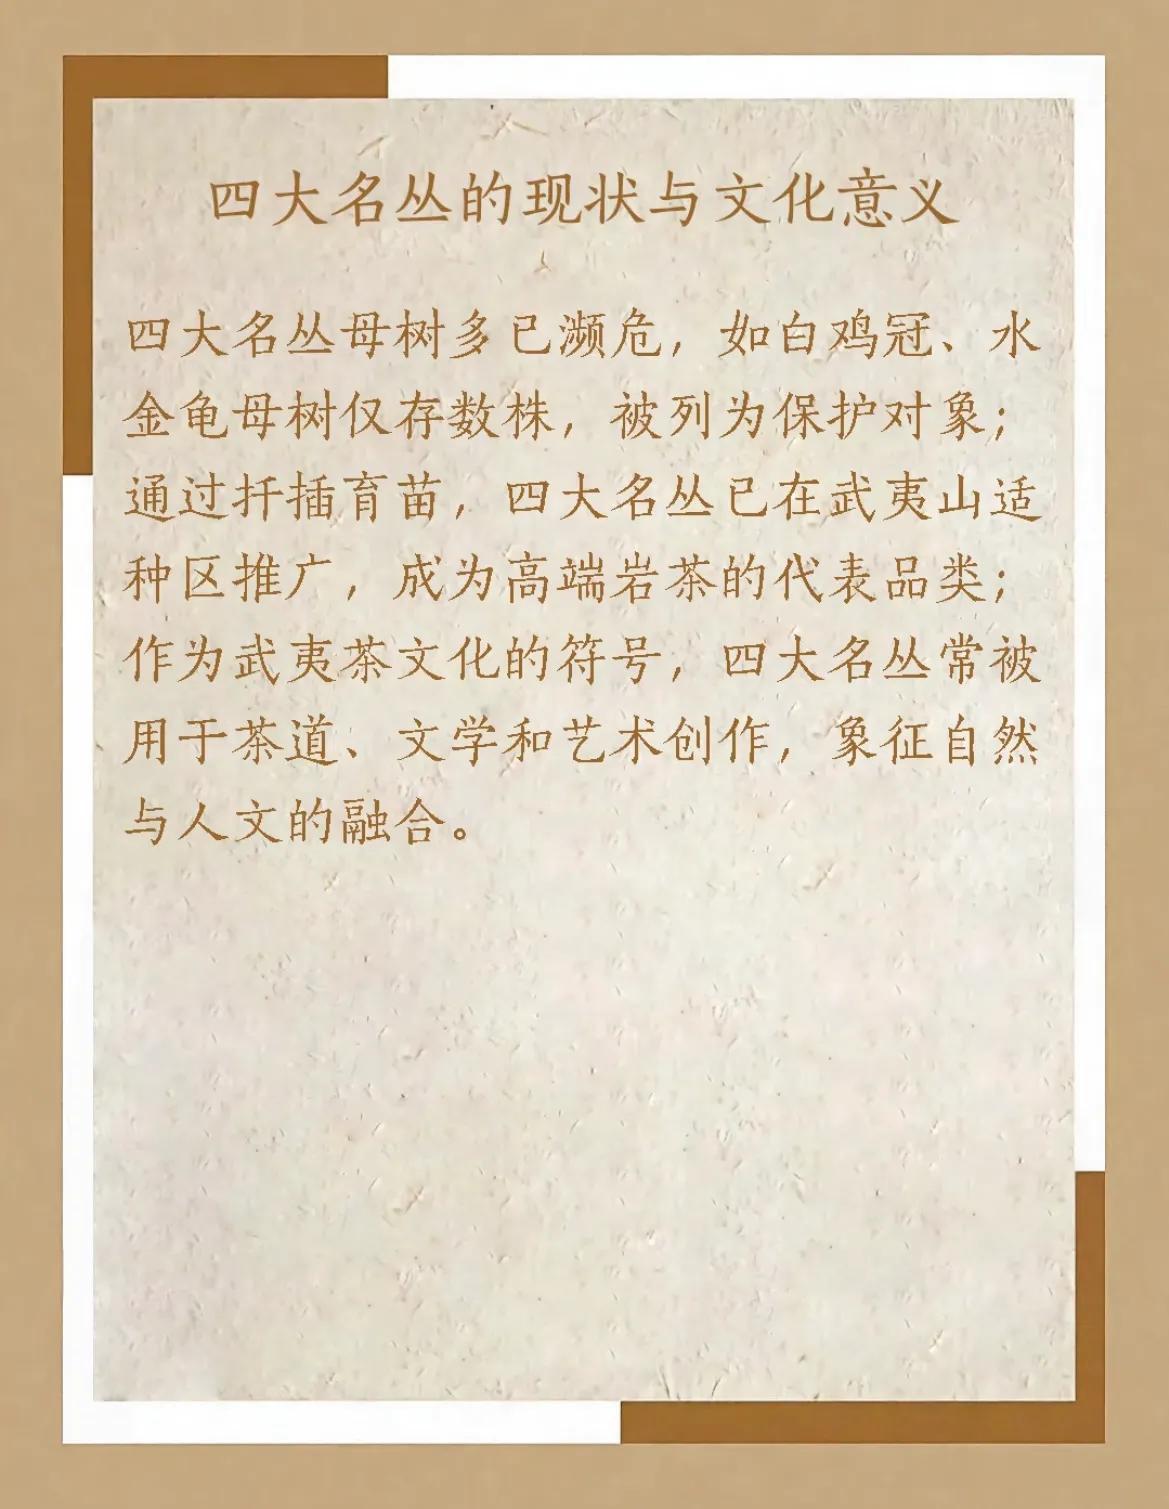 四大名丛的现状与文化意义
四大名丛母树多已濒危，如白鸡冠、水
金龟母树仅存数株，被列为保护对象；
通过扦插育苗，四大名丛已在武夷山适
种区推广，成为高端岩茶的代表品类；
作为武夷茶文化的符号，四大名丛常被
用于茶道、文学和艺术创作，象征自然
与人文的融合。